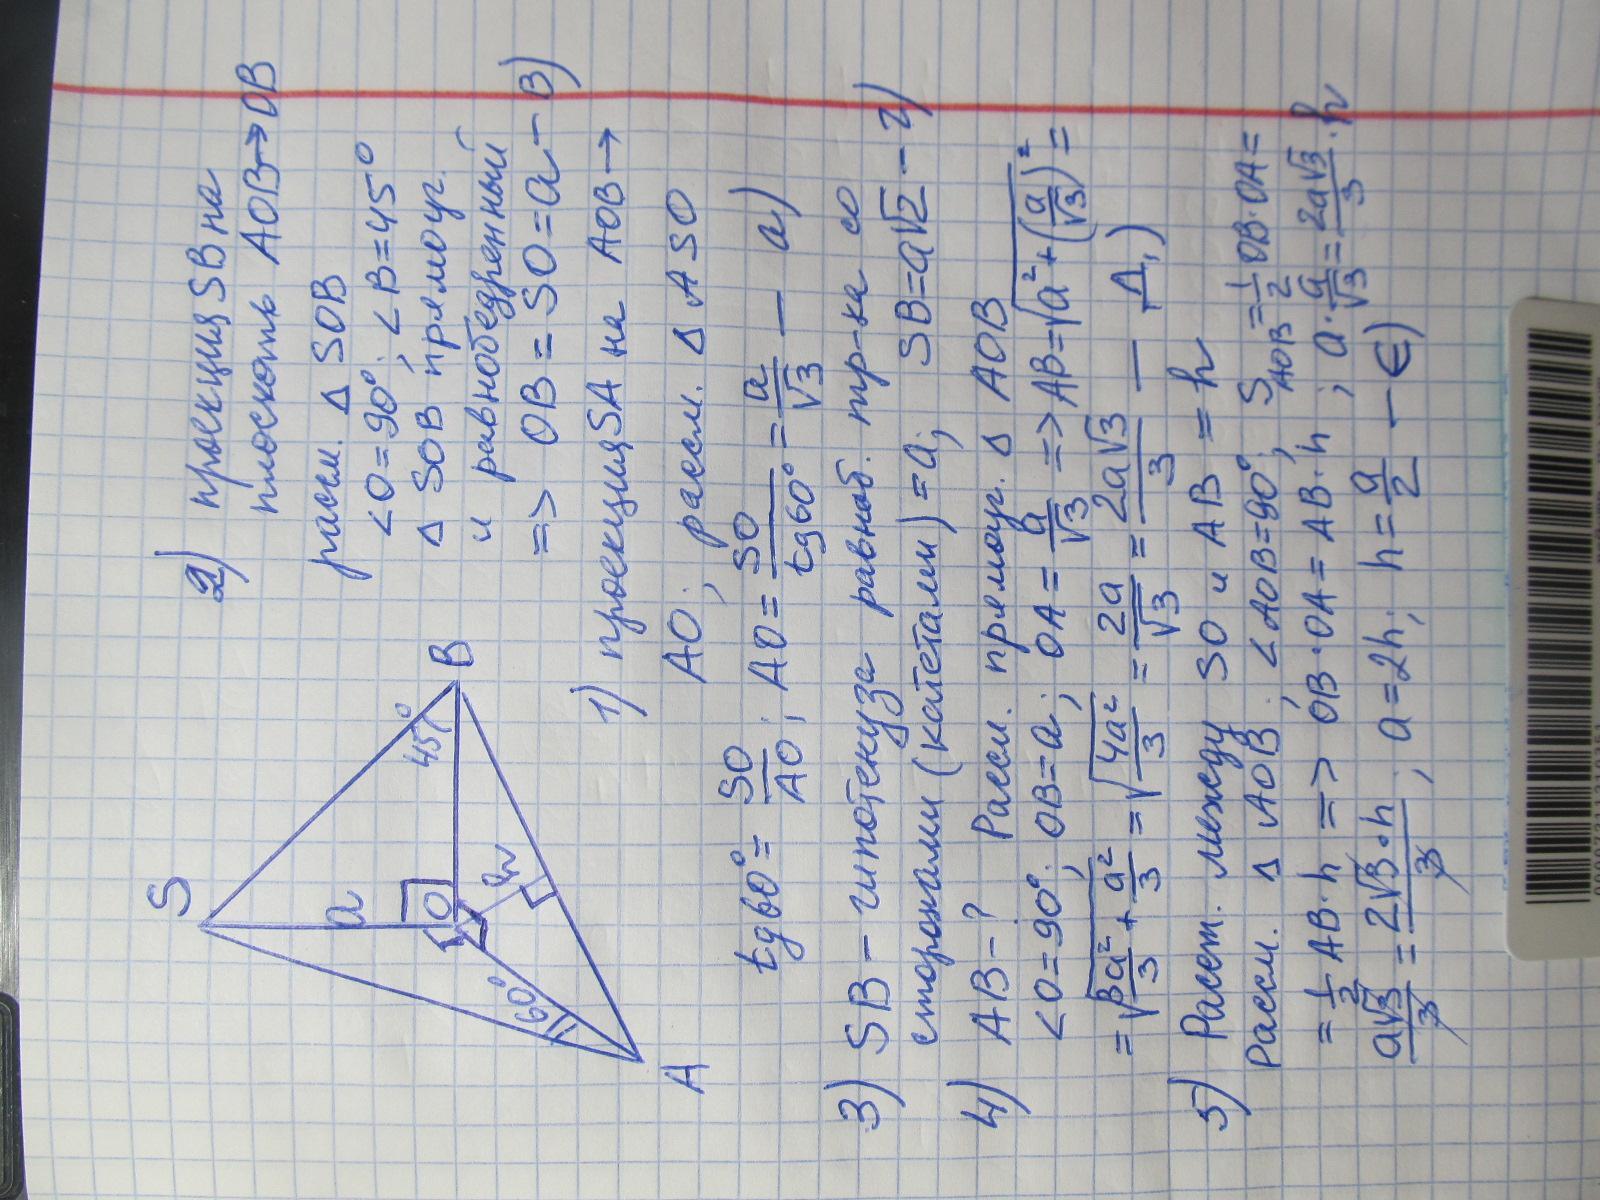 S
a
45°
B
O
h
60°
A
2) проекция SB на
плоскость AOB → OB
рассм. Δ SOB
<O=90°; <B=45°
Δ SOB прямоуг.
и равнобедренный
=> OB = SO = a - В)
1) проекция SA на AOB →
AO; рассм. Δ ASO
tg60° = SO/AO; AO = SO/tg60° = a/√3 — а)
3) SB - гипотенуза равноб. тр-ка со
сторонами (катетами) = a; SB = a√2 - г)
4) AB - ? Рассм. прямоуг. Δ AOB
<O=90°; OB=a; OA = a/√3 => AB = √(a² + (a/√3)²) =
= √(3a²/3 + a²/3) = √(4a²/3) = 2a/√3 = 2a√3/3 — Д)
5) Расст. между SO и AB = h
Рассм. Δ AOB: <AOB=90°; S AOB = 1/2 OB·OA =
= 1/2 AB·h => OB·OA = AB·h; a·a/√3 = 2a√3/3·h
a√3/3 = 2√3·h/3; a=2h; h = a/2 - Е)